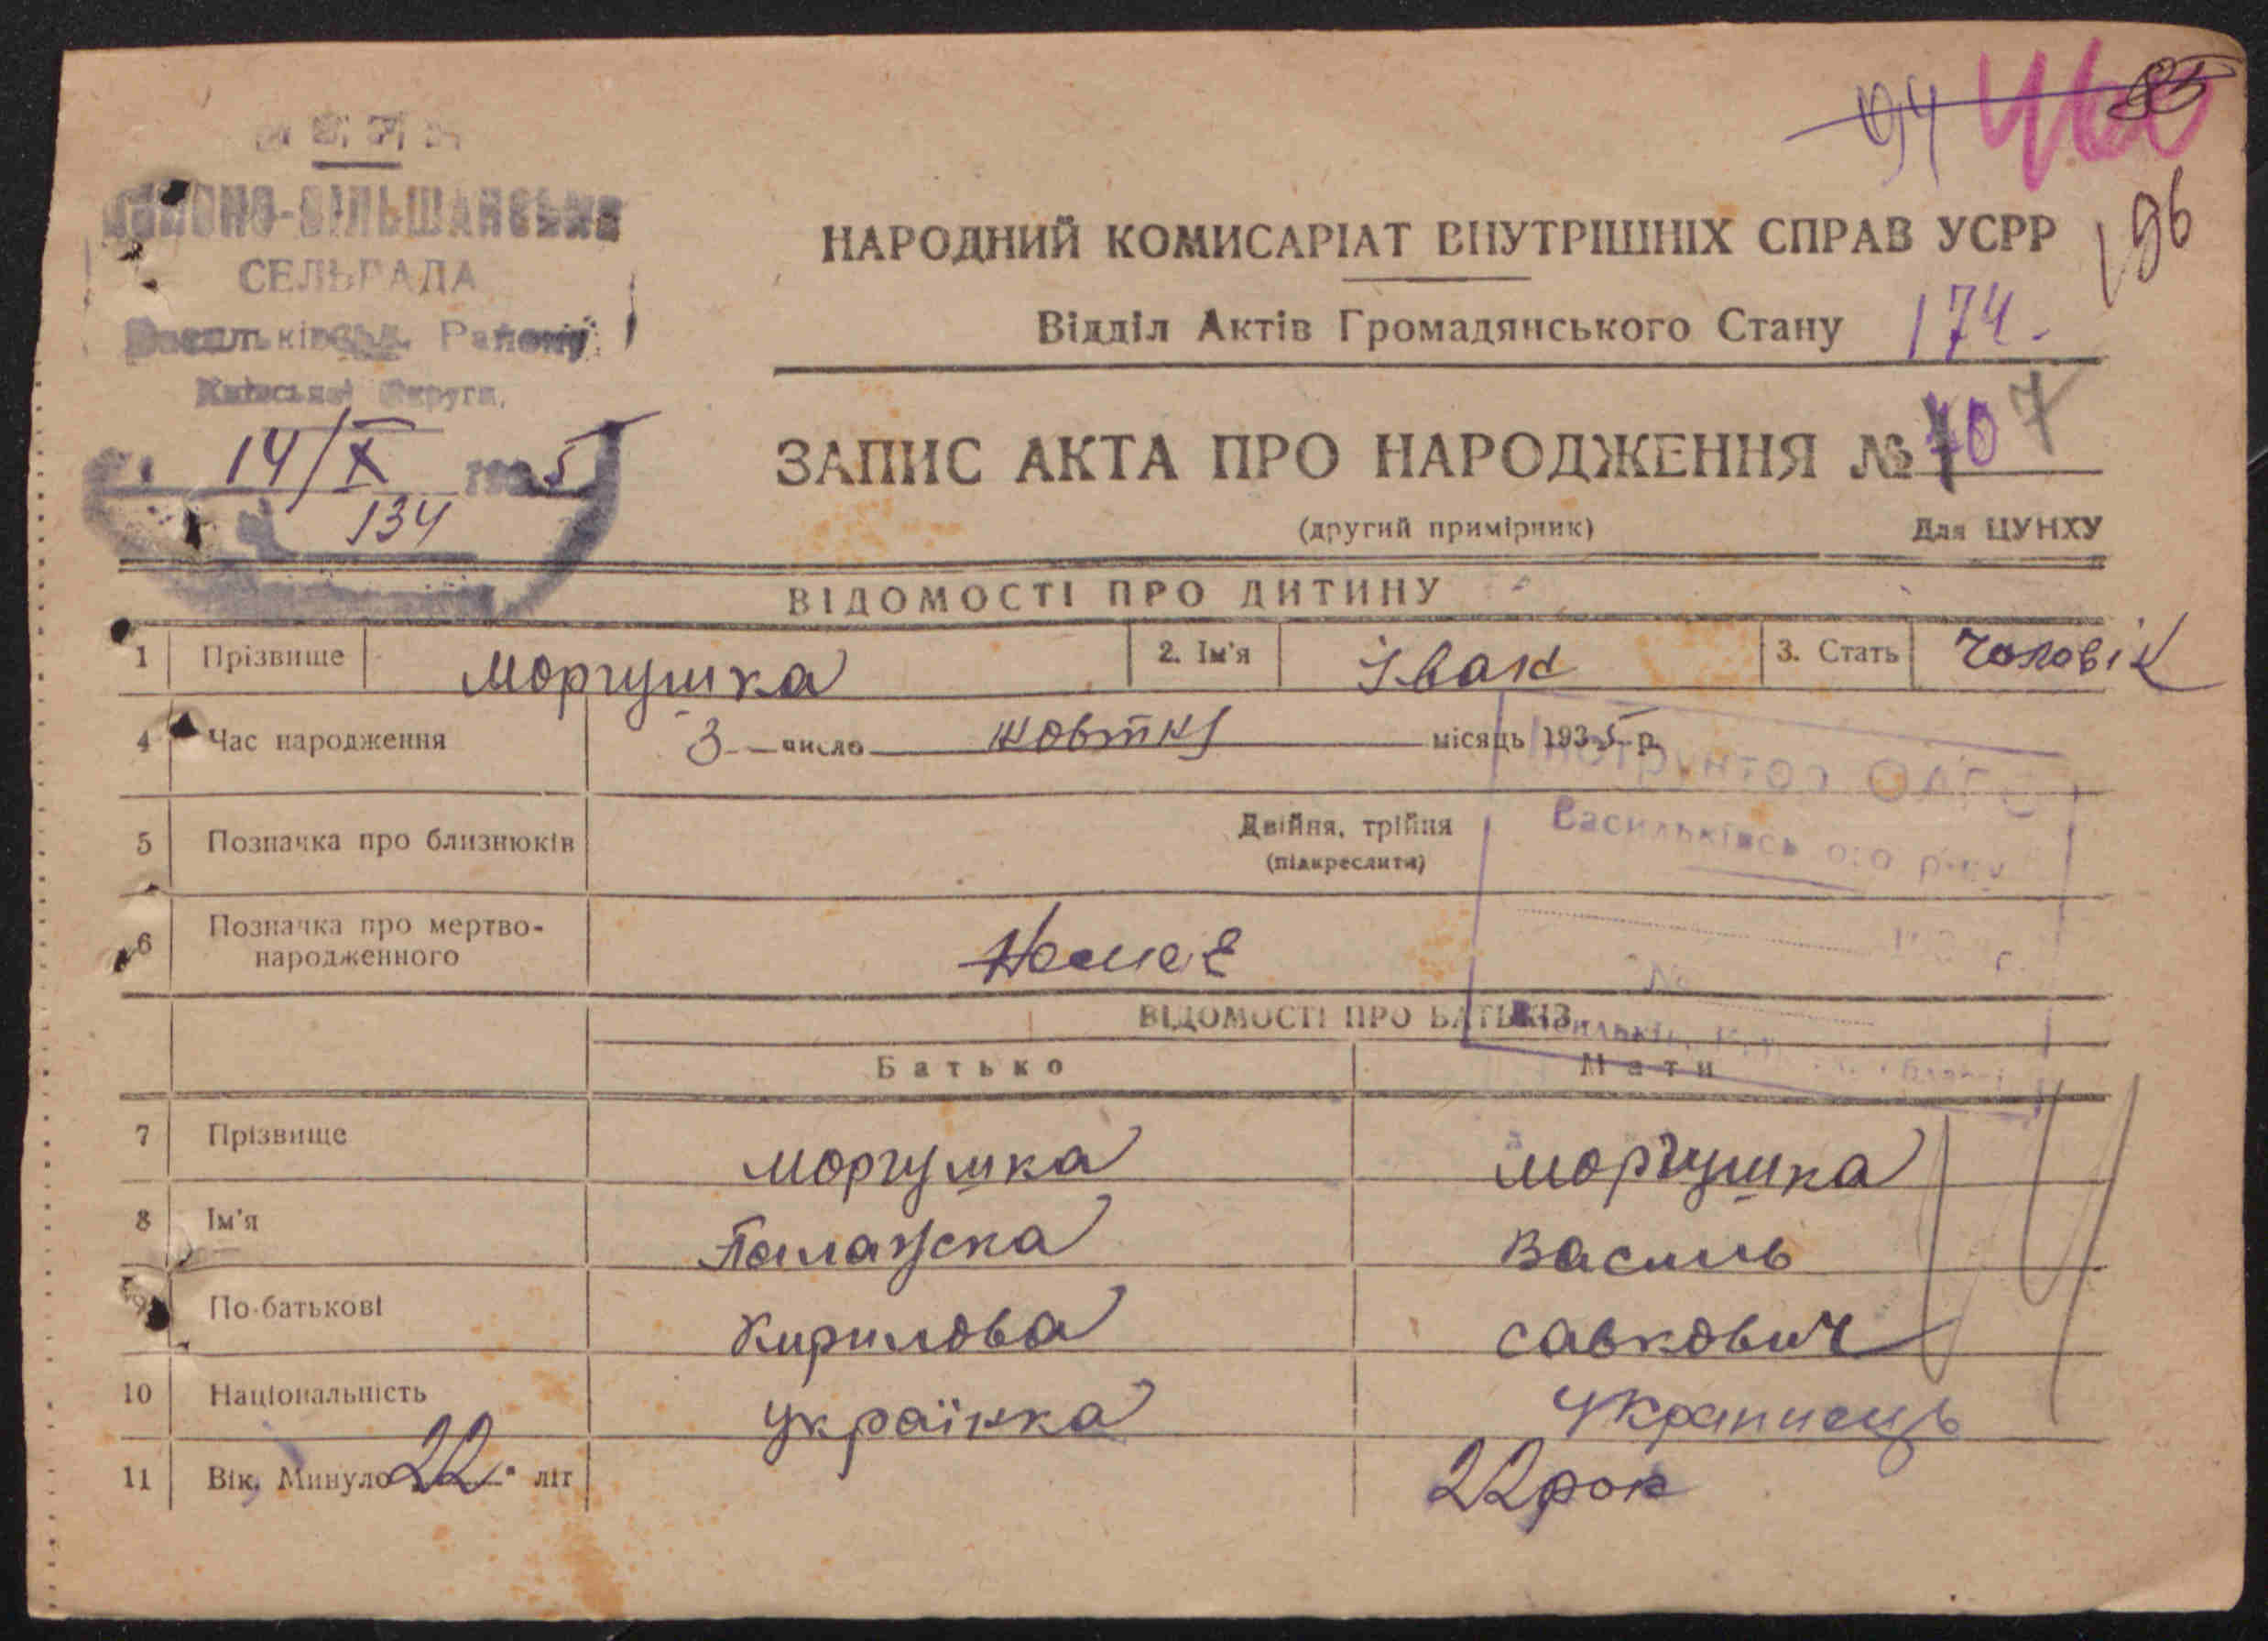 94 460 85
196
СЕЛЬРАДА
Району
Округи,
14/X 1935
134
НАРОДНИЙ КОМИСАРІАТ ВНУТРІШНІХ СПРАВ УСРР
Відділ Актів Громадянського Стану 174.
ЗАПИС АКТА ПРО НАРОДЖЕННЯ № 107
(другий примірник) Для ЦУНХУ
ВІДОМОСТІ ПРО ДИТИНУ
1 Прізвище Моргушка 2. Ім'я Іван 3. Стать Чоловік
4 Час народження 3 число жовтня місяць 1935 р.
Васильківсь ого р-ну
5 Позначка про близнюків Двійня, трійня
(підкреслити)
6 Позначка про мертво-
народженного Немає
№
ВІДОМОСТІ ПРО БАТЬКІВ
Батько Мати
7 Прізвище моргушка моргушка
8 Ім'я Палажка Василь
9 По-батькові Кирилова савкович
10 Національність українка Українець
11 Вік. Минуло 22 літ 22 рок